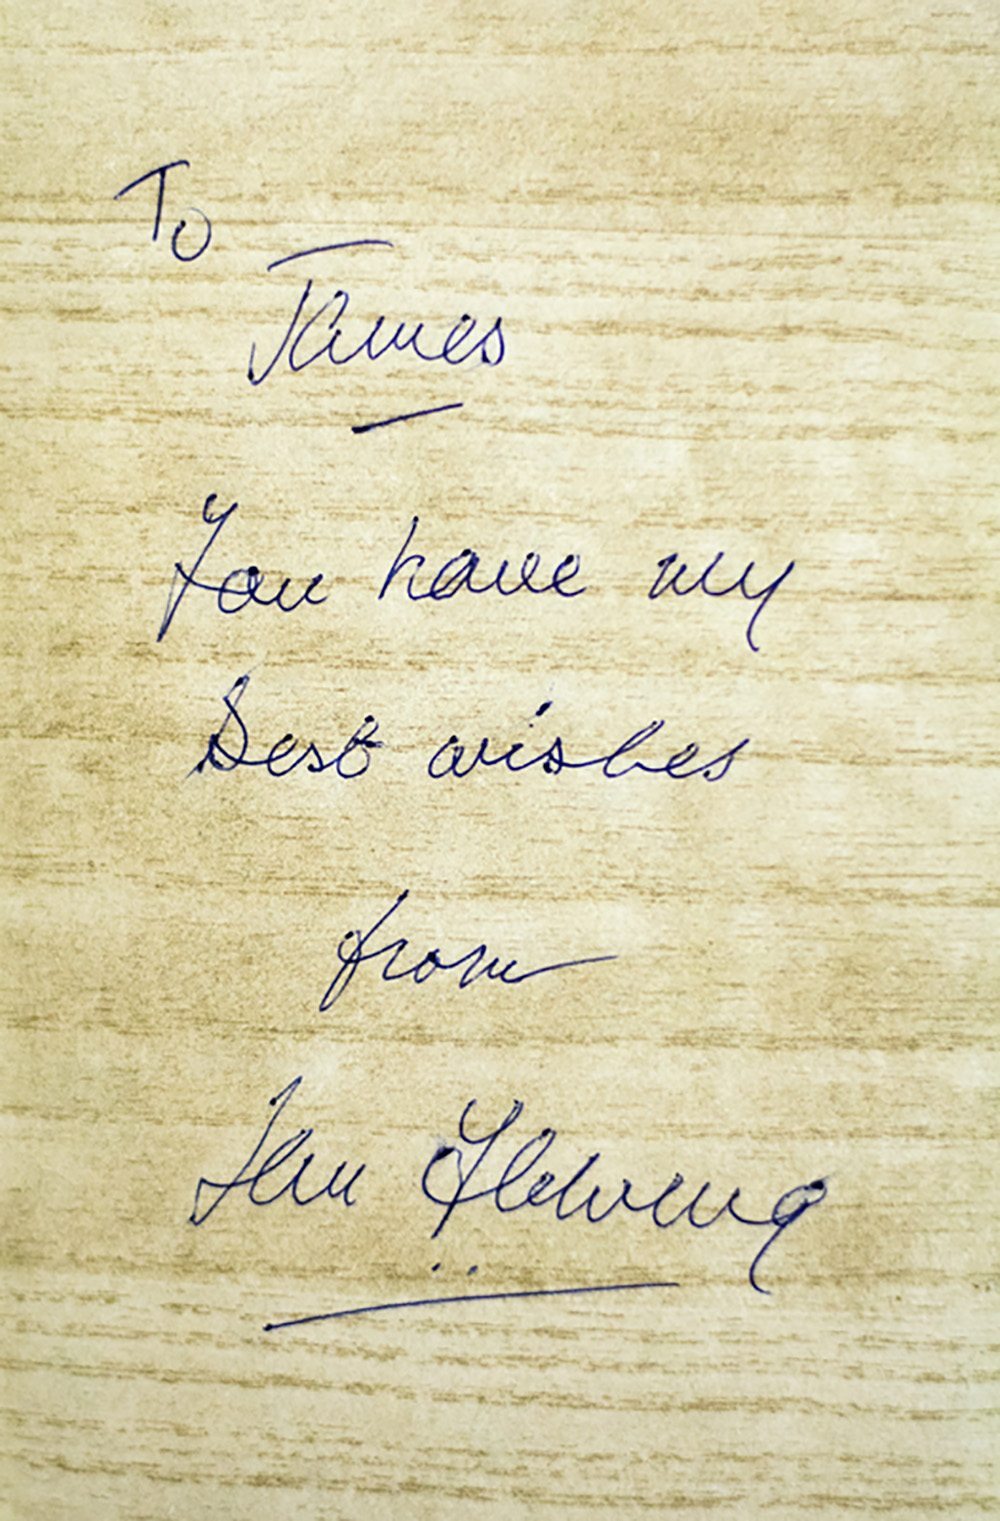 To
James
You have my
Best wishes
from
Ian Fleming